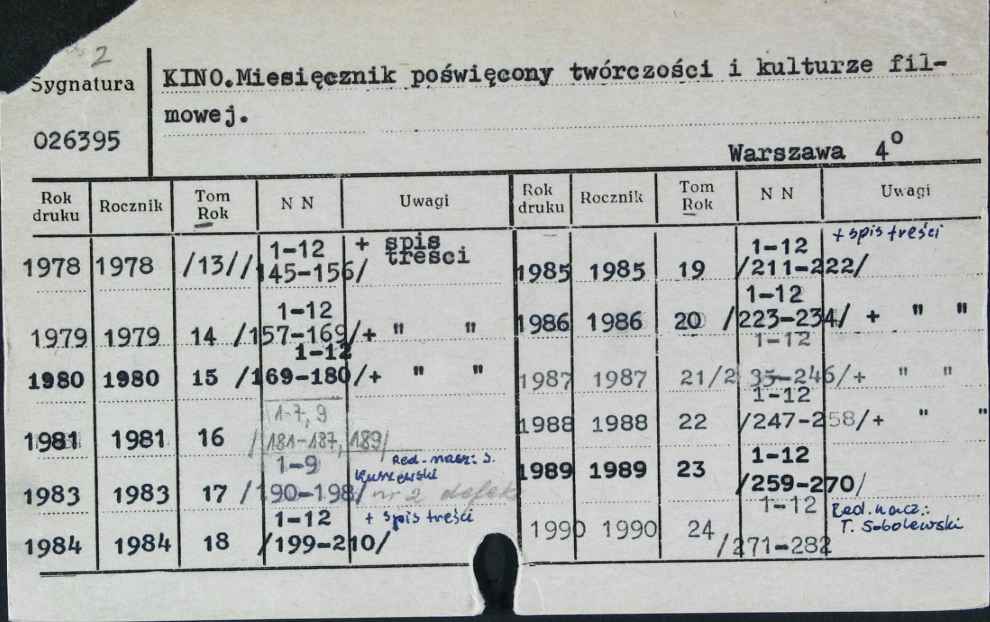 2
Sygnatura
026395
KINO.Miesięcznik poświęcony twórczości i kulturze fil-
mowej.
Warszawa 4⁰
Rok druku Rocznik Tom Rok N N Uwagi
1978 1978 /13// 1-12 /145-156/ + spis treści
1979 1979 14 1-12 /157-169/ + " "
1980 1980 15 1-12 /169-180/ + " "
1981 1981 16 1-7, 9 /181-187, 189/
1983 1983 17 1-9 /190-198/ nr 2 defekt Red. nacz: J. Kuszewski
1984 1984 18 1-12 /199-210/ + spis treści
Rok druku Rocznik Tom Rok N N Uwagi
1985 1985 19 1-12 /211-222/ + spis treści
1986 1986 20 1-12 /223-234/ + " "
1987 1987 21 1-12 /235-246/ + " "
1988 1988 22 1-12 /247-258/ + " "
1989 1989 23 1-12 /259-270/
1990 1990 24 1-12 /271-282 Red. nacz.: T. Sobolewski